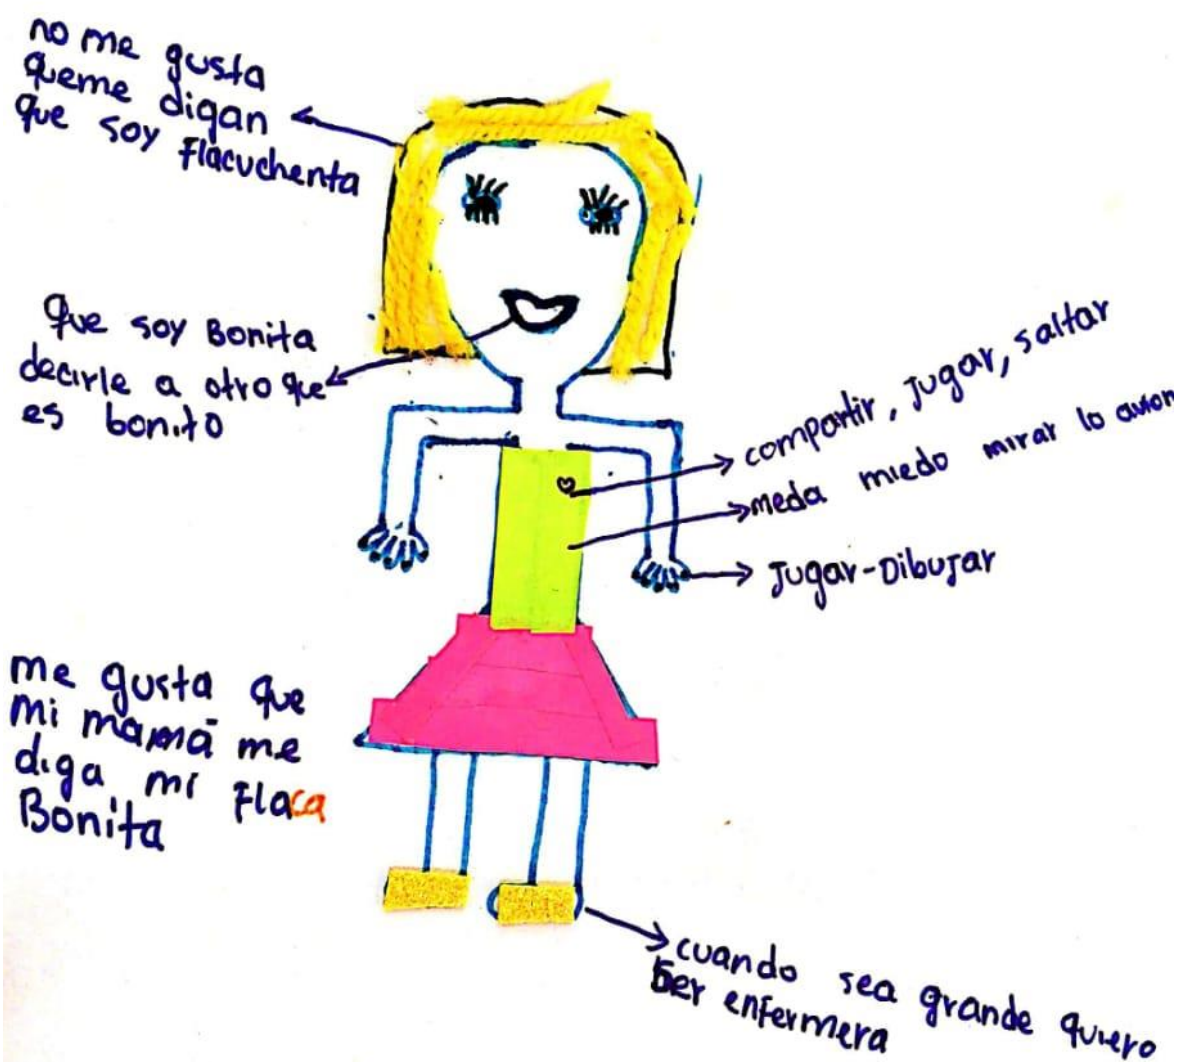 no me gusta
queme digan
que soy Flacuchenta
que soy Bonita
decirle a otro que
es bonito
compartir, Jugar, saltar
meda miedo mirar lo avion
Jugar-Dibujar
me gusta que
mi mamá me
diga mi Flaca
Bonita
cuando sea grande quiero
Ser enfermera